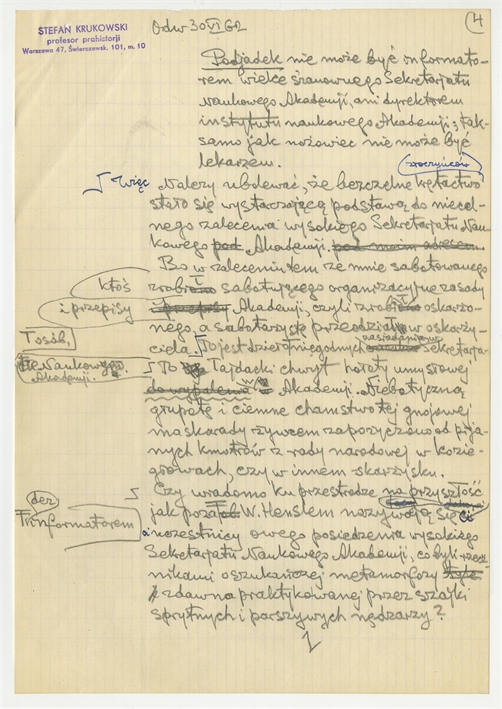 STEFAN KRUKOWSKI
profesor prehistorji
Warszawa 47, Świerczewsk. 101, m. 10
Odw 30 VI 62
4
Podjadek nie może być informato-
rem wielce szanownego Sekretarjatu
Naukowego Akademji, ani dyrektorem
instytutu naukowego Akademji; tak-
samo jak nożowiec nie może być
lekarzem.
złoczyńców
Więc Należy ubolewać, że bezczelne krętactwo
stało się wystarczającą podstawą do niecel-
nego zalecenia wysokiego Sekretarjatu Nau-
kowego pod Akademji. pod moim adresem.
Bo w zaleceniu tem ze mnie sabotowanego
ktoś
zrobił sabotującego organizacyjne zasady
i przepisy
i przepisy Akademji, czyli zrobił oskarżo-
nego, a sabotażystę przeodział w oskarży-
Tosók,
ciela. To jest dzieło niegodnych Sekretarja-
tu Naukowego
Akademji.
To Tajdacki chwyt hołoty umysłowej
do wypalenia w Akademji. Niebotyczną
głupotę i ciemne chamstwo tej gnojowej
maskarady żywcem zapożyczono od pija-
nych kmotrów z rady narodowej w kozie-
głowach, czy w innem skarżysku.
Czy wiadomo ku przestrodze na przyszłość
der
informatorem
jak poza W. Henslem nazywają się
uczestnicy owego posiedzenia wysokiego
Sekretarjatu Naukowego Akademji, co byli rzecz-
nikami oszukańczej metamorfozy
zdawna praktykowanej przez szajki
sprytnych i parszywych nędzarzy?